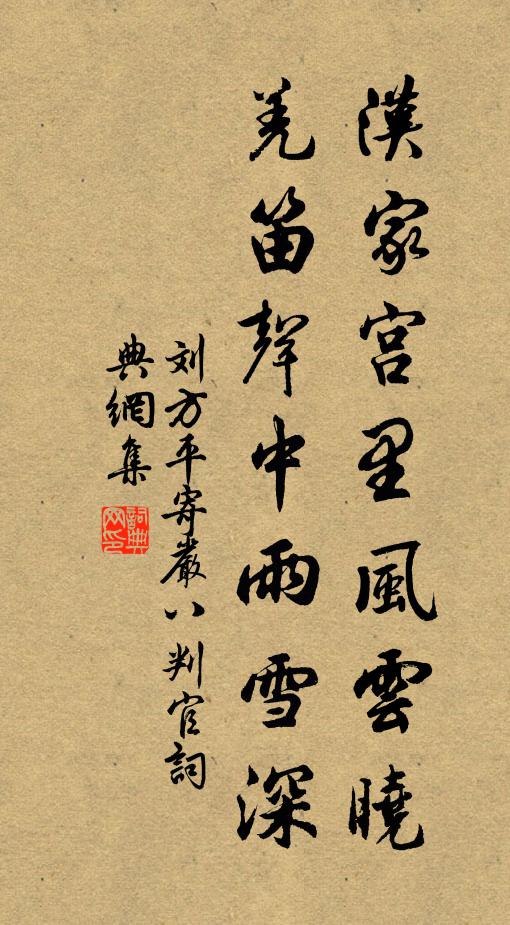 漢家宮里風雲曉
羌笛聲中雨雪深
刘方平寄嚴八判官詞
典網集
詞典网印